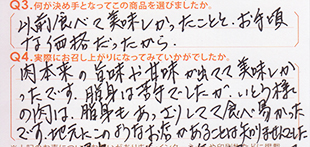 Q3.何が決め手となってこの商品を選びましたか。
以前食べて美味しかったことと、お手頃
な価格だったから。
Q4.実際にお召し上がりになってみていかがでしたか。
肉本来の旨味や甘味が出てて美味しか
ったです。脂身は苦手でしたが、いしう様
の肉は、脂身もあっさりしてて食べ易かった
です。地元にこのようなお店があることは知りませんでした